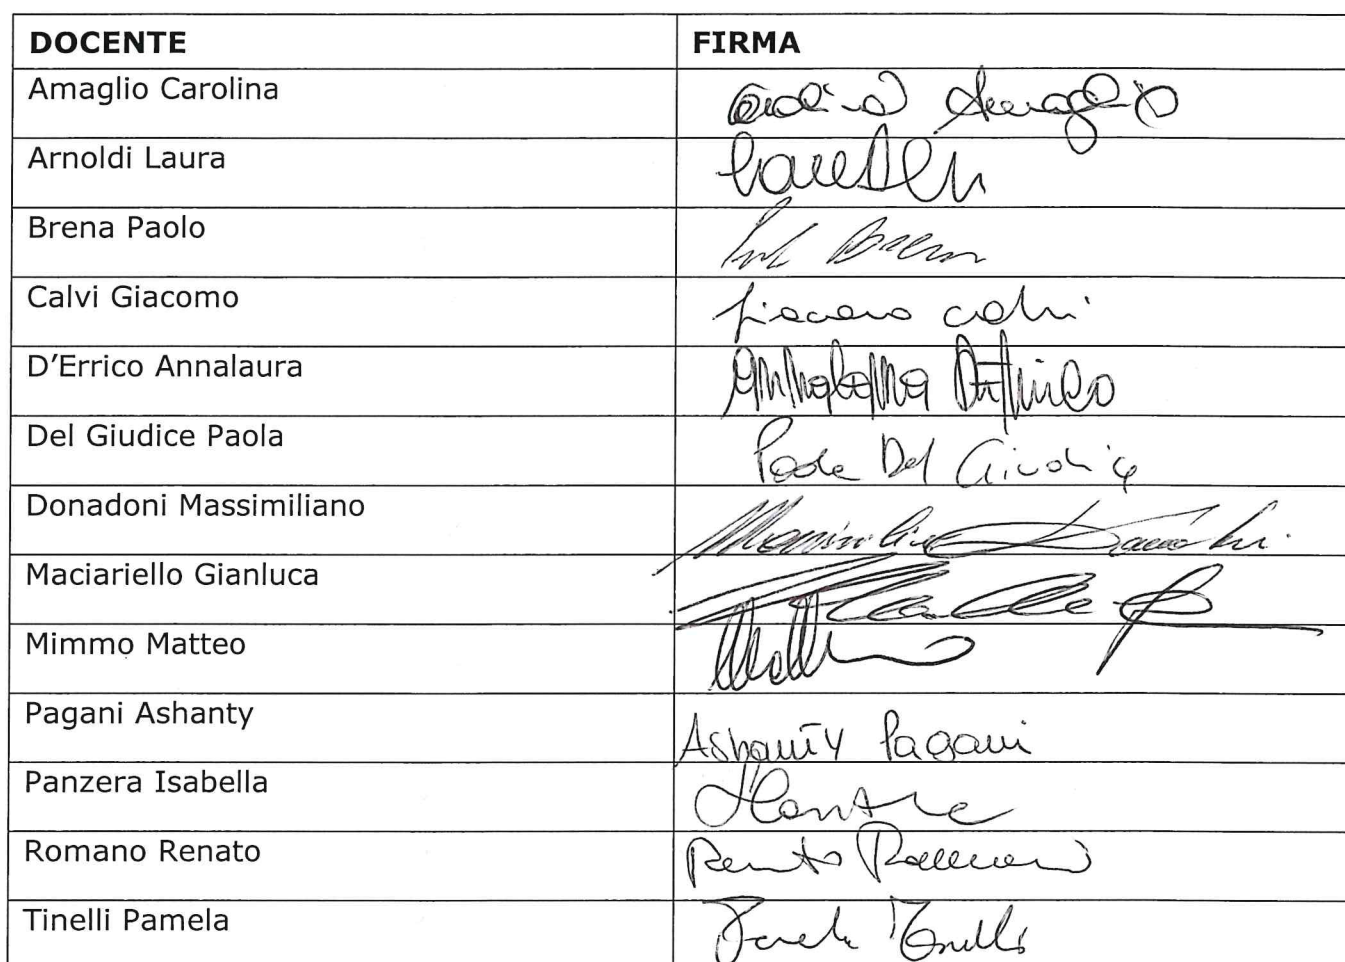 DOCENTE FIRMA
Amaglio Carolina
Arnoldi Laura
Brena Paolo
Calvi Giacomo Giacomo Calvi
D'Errico Annalaura Annalaura D'Errico
Del Giudice Paola Paola Del Giudice
Donadoni Massimiliano
Maciariello Gianluca
Mimmo Matteo
Pagani Ashanty Ashanty Pagani
Panzera Isabella
Romano Renato Renato Romano
Tinelli Pamela Pamela Tinelli